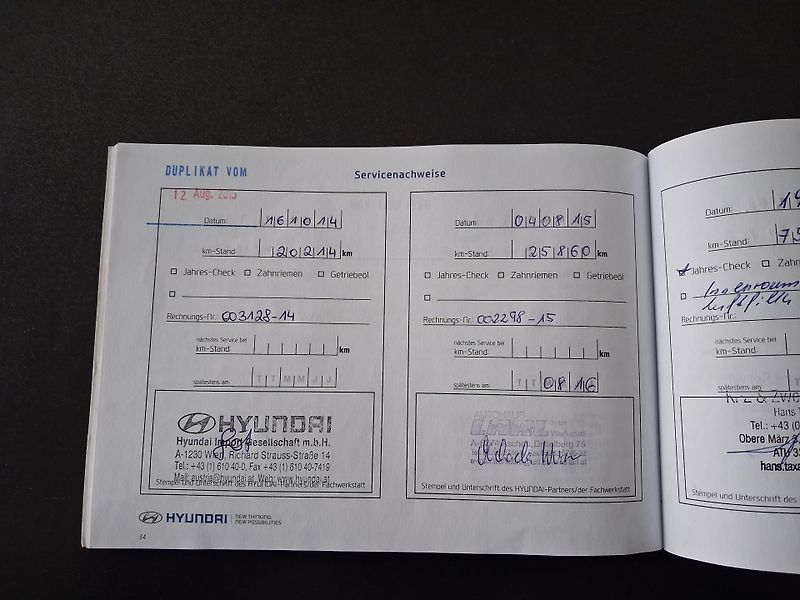 DUPLIKAT VOM
12. Aug. 2015
Servicenachweise
Datum: 161014
km-Stand: 20214 km
Jahres-Check Zahnriemen Getriebeöl
Rechnungs-Nr.: 003128-14
nächstes Service bei
km-Stand: km
spätestens am: T T M M J J
HYUNDAI
Hyundai Import Gesellschaft m.b.H.
A-1230 Wien, Richard Strauss-Straße 14
Tel.: +43 (1) 610 40-0, Fax +43 (1) 610 40-7419
Mail: austria@hyundai.at, Web: www.hyundai.at
Stempel und Unterschrift des HYUNDAI-Partners/der Fachwerkstatt
HYUNDAI NEW THINKING. NEW POSSIBILITIES.
34
Datum: 040815
km-Stand: 25860 km
Jahres-Check Zahnriemen Getriebeöl
Rechnungs-Nr.: 002298-15
nächstes Service bei
km-Stand: km
spätestens am: T T 0816
AUTOHAUS
Werkstatt
Stempel und Unterschrift des HYUNDAI-Partners/der Fachwerkstatt
Datum: 19
km-Stand: 75
Jahres-Check Zahn
Rechnungs-Nr.:
nächstes Service bei
km-Stand:
spätestens am:
Hans
Tel.: +43 (0
Obere März
ATU 33
hans.taxa
Stempel und Unterschrift des